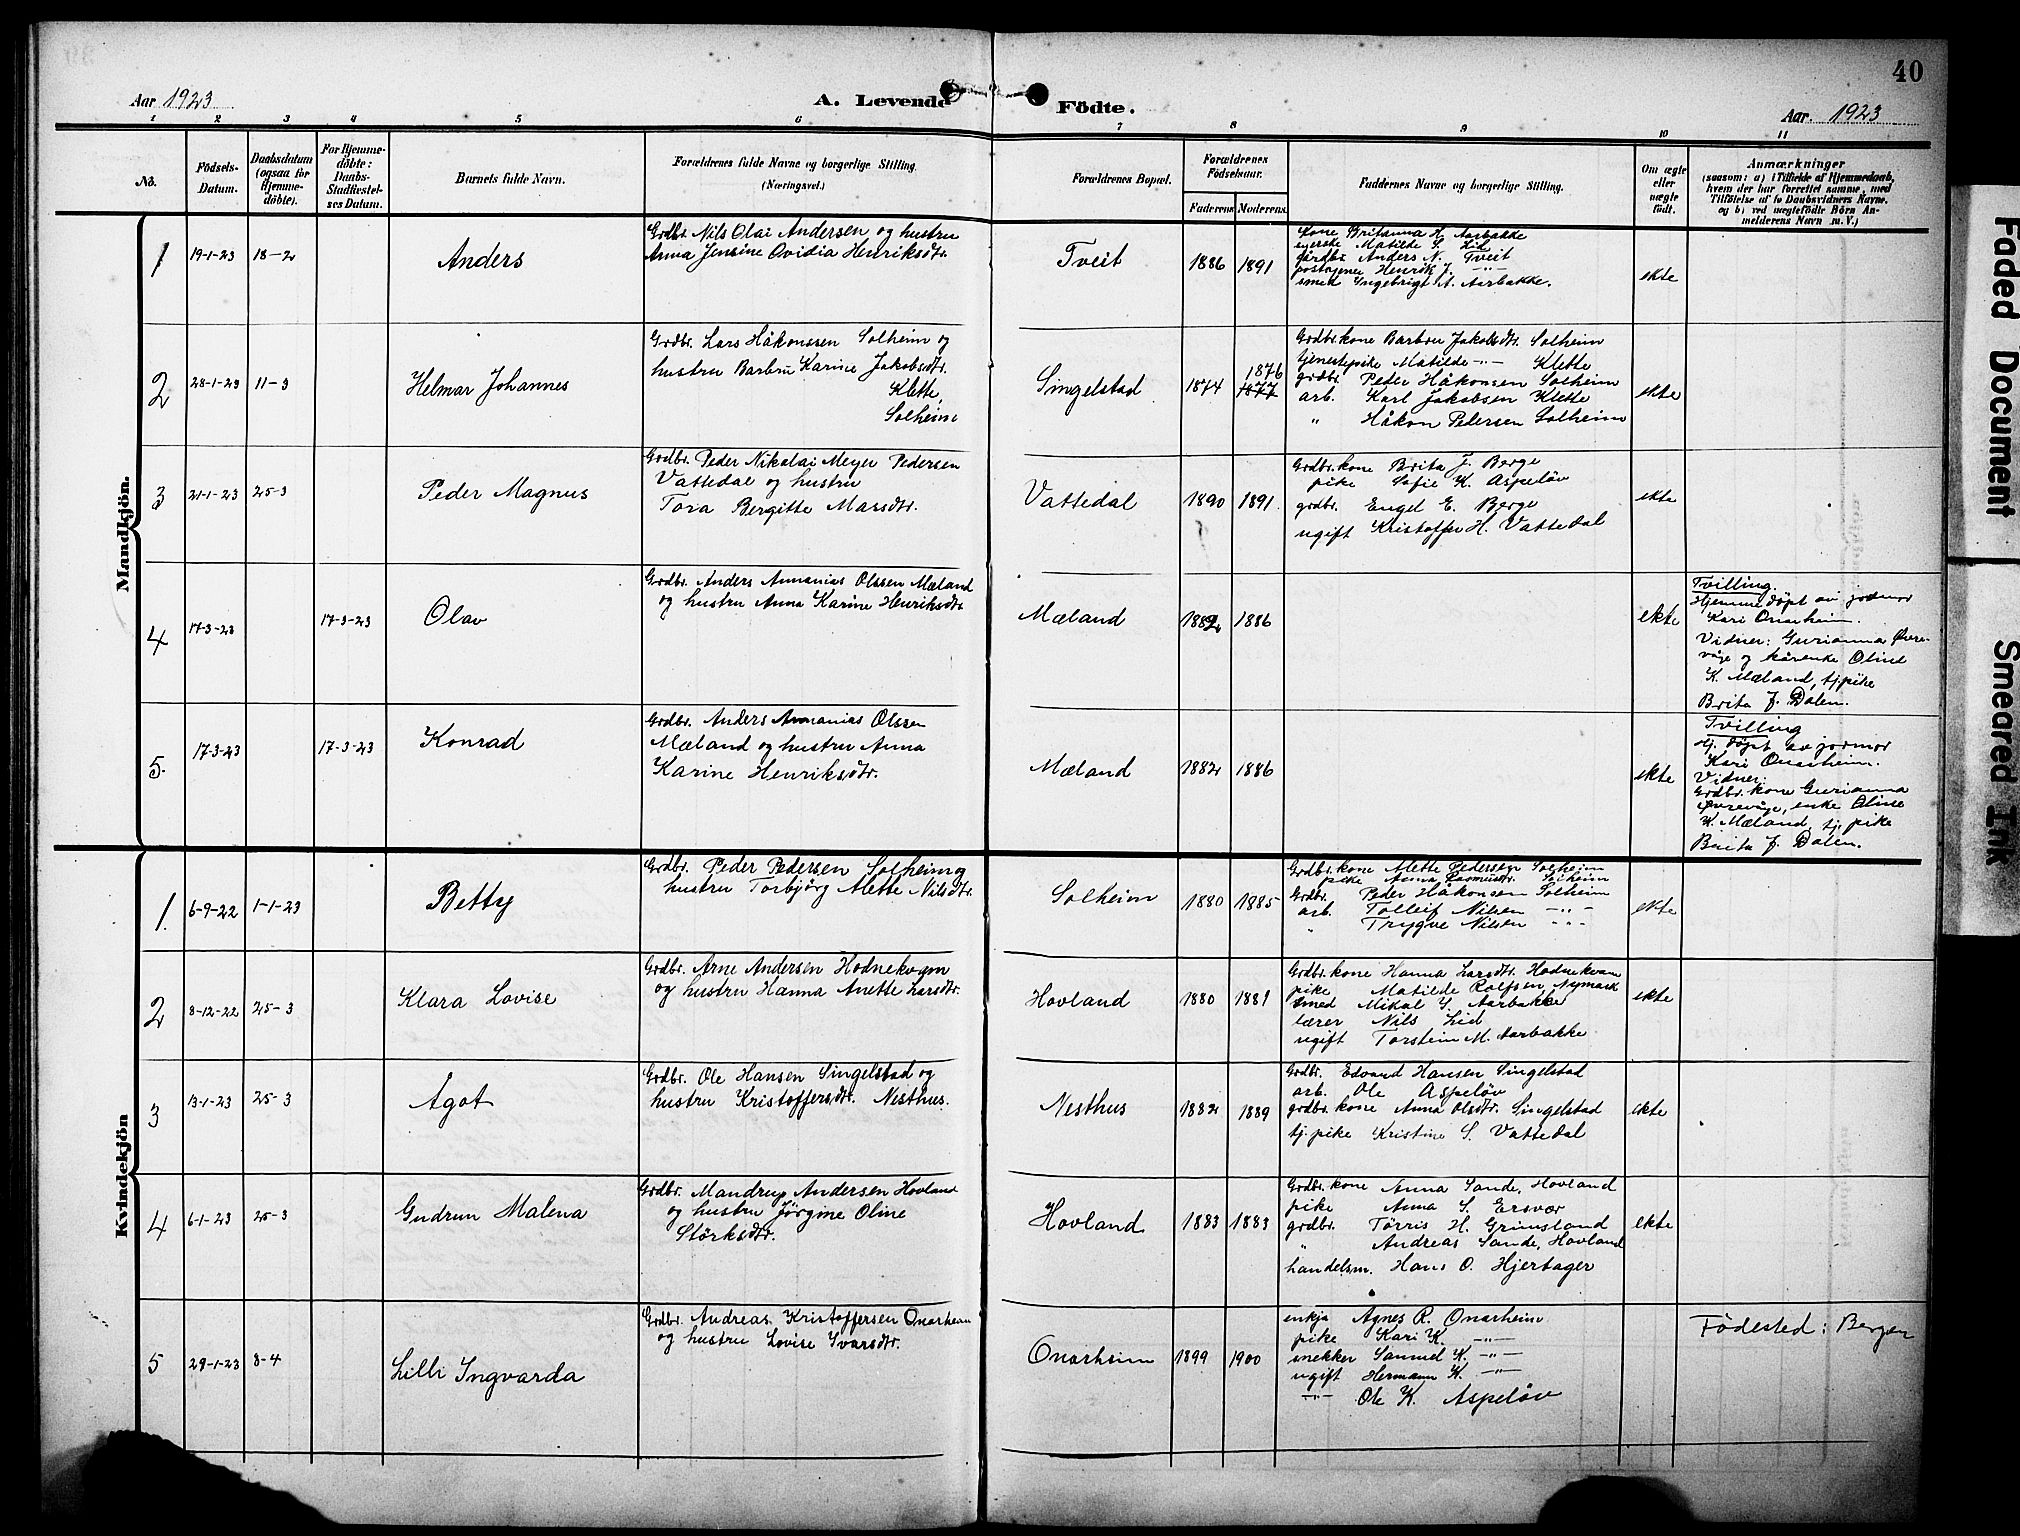 40
Aar 1923
A. Levende Födte.
Aar. 1923
1 2 3 4 5 6 7 8 9 10 11
No.
Födsels-
Datum.
Daabsdatum
(ogsaa for
Hjemme-
döbte).
For Hjemme-
döbte:
Daabs-
Stadfæstel-
ses Datum.
Barnets fulde Navn.
Forældrenes fulde Navne og borgerlige Stilling.
(Næringsvei.)
Forældrenes Bopæl.
Forældrenes
Födselsaar.
Faderens Moderens.
Faddernes Navne og borgerlige Stilling.
Om ægte
eller
uægte
født.
Anmærkninger
(saasom: a) i Tilfælde af Hjemmedaab,
hvem der har forrettet samme, med
Tilföielse af to Daabsvidners Navne,
og b) ved uægtefödte Börn An-
melderens Navn m. V.)
Mandkjön.
1 19-1-23 18-2
Anders
Grdbr. Nils Olai Andersen og hustru
Anna Jensine Ovidia Henriksdtr.
Tveit
1886 1891
kone Britanna H. Aarbakke
Matilde S. Lid
gardbr. Anders N. Tveit
Henrik J. -"-
smed Ingebrigt A. Aarbakke.
ekte
2 28-1-23 11-3
Helmar Johannes
Grdbr. Lars Håkonssen Solheim og
hustru Barbru Karine Jakobsdtr.
Klette,
Solheim
Singelstad
1874 1876
1877
Grdbr.kone Barbru Jakobsdtr. Solheim
tjenestepike Matilde -"- Klette
grdbr. Peder Håkonsen Solheim
arb. Karl Jakobsen Klette
" Håkon Pedersen Solheim
ekte
3 21-1-23 25-3
Peder Magnus
Grdbr. Peder Nikolai Meyer Pedersen
Vattedal og hustru
Tora Bergitte Marsdtr.
Vattedal
1890 1891.
Grdbr.kone Brita J. Berge
pike Sofie K. Aspeløv
grdbr. Engel E. Berge
ugift Kristoffer H. Vattedal
ekte
4 17-3-23 17-3-23
Olav
Grdbr. Anders Annanias Olssen Mæland
og hustru Anna Karine Henriksdtr.
Mæland
1882 1886
ekte
Tvilling.
Hjemmedøpt av jordmor
Kari Onarheim.
Vidner: Gurianna Øvre-
våge og kårenke Oline
K. Mæland, tj.pike
Brita J. Dalen.
5. 17-3-23 17-3-23
Konrad
Grdbr. Anders Annanias Olssen
Mæland og hustru Anna
Karine Henriksdtr.
Mæland
1882 1886
ekte
Tvilling
Hj. døpt av jormor
Kari Onarheim.
Vidner:
Grdbr.kone Gurianna
Øvrevåge, enke Oline
K. Mæland, tj. pike
Brita J. Dalen.
Kvindekjön
1. 6-9-22 1-1-23
Betty
Grdbr. Peder Pedersen Solheim og
hustru Torbjørg Mette Nilsdtr.
Solheim
1880 1885
Grdbr. kone Mette Pedersen Solheim
pike Anna Rasmusdtr. Solheim
Grdbr. Peder Håkonsen Solheim
arb. Tolleif Nilsen -"-
" Trygve Nilsen -"-
ekte
2 8-12-22 25-3
Klara Lovise
Grdbr. Arne Andersen Hodnekvam
og hustru Hanna Anette Larsdtr.
Hovland
1880 1881
Grdbr.kone Hanna Larsdtr. Hodnekvam
pike Matilde Rolfsen Nymark
smed Mikal I. Aarbakke
lærer Nils Lid
ugift Torstein M. Aarbakke
ekte
3 13-1-23 25-3
Agot
Grdbr. Ole Hansen Singelstad og
hustru Kristoffersdtr. Nesthus.
Nesthus
1882 1889
Grdbr. Edvard Hansen Singelstad
arb. Ole Aspeløv
grdbr. kone Anna Olsdtr. Singelstad
tj. pike Kristine S. Vattedal
ekte
4 6-1-23 25-3
Gudrun Malena
Grdbr. Mandrup Andersen Hovland
og hustru Jørgine Oline
Størksdtr.
Hovland
1883 1883
Grdbr. kone Anna Sande, Hovland
pike Anna S. Ersvær
grdbr. Tørris H. Grimsland
" Andreas Sande, Hovland
handelsm. Hans O. Hjertager
ekte
5 29-1-23 8-4
Lilli Ingvarda
Grdbr. Andreas Kristoffersen Onarheim
og hustru Lovise Ivarsdtr.
Onarheim
1899 1900
enkja Agnes R. Onarheim
pike Kari K. -"-
snekker Samuel K. -"-
ugift Hermann K. -"-
-"- Ole K. Aspeløv
Fødested: Bergen
Faded Document
Smeared Ink